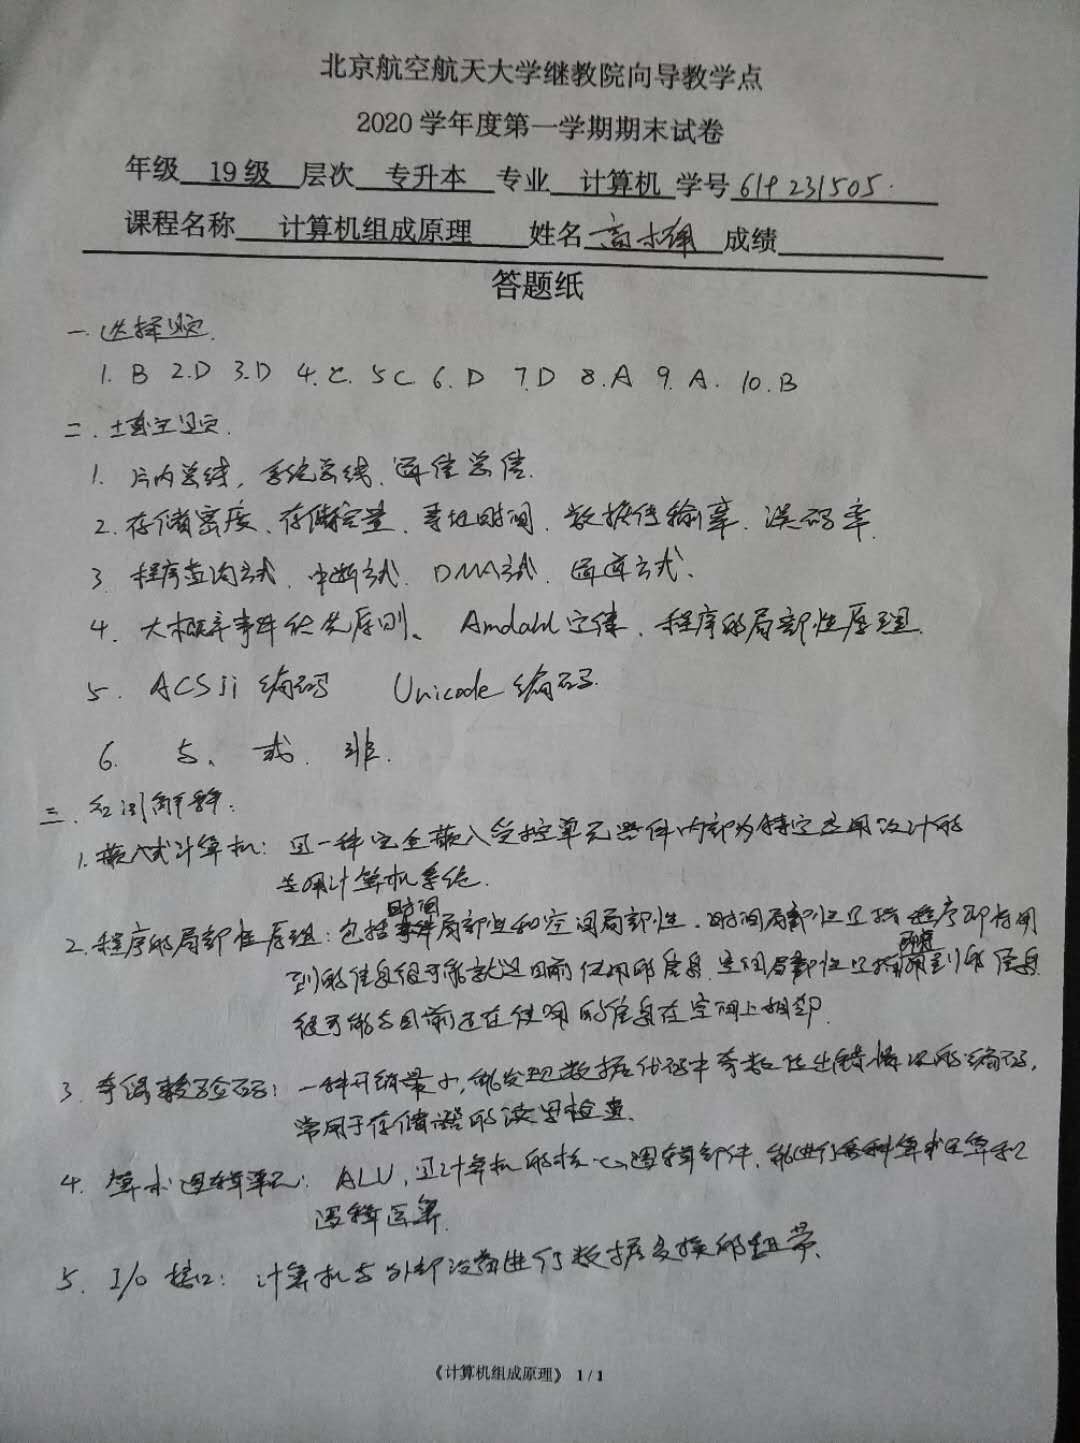 北京航空航天大学继教院向导教学点
2020 学年度第一学期期末试卷
年级 19级 层次 专升本 专业 计算机 学号 619231505.
课程名称 计算机组成原理 姓名 高 成绩
答题纸
一. 选择题.
1. B 2.D 3.D 4.C. 5C 6.D 7.D 8.A 9.A. 10.B
二. 填空题.
1. 片内总线, 系统总线、通信总信.
2. 存储密度、存储容量、寻址时间、数据传输率、误码率.
3. 程序查询方式、中断方式、DMA方式、通道方式、
4. 大概率事件优先原则、Amdahl定律、程序的局部性原理.
5. ACSii编码 Unicode编码.
6. 与、或、非.
三. 名词解释:
1. 嵌入式计算机: 是一种完全嵌入受控单元器件内部为特定应用设计的
专用计算机系统.
2. 程序的局部性原理: 包括时间局部性和空间局部性. 时间局部性是指程序即将用
到的信息很可能就是目前使用的信息. 空间局部性是指即将用到的信息
很可能与目前正在使用的信息在空间上相邻.
3. 奇偶校验码: 一种开销最小, 能发现数据代码中奇数位出错情况的编码,
常用于存储器的读写检查.
4. 算术逻辑单元: ALU, 是计算机的核心逻辑部件, 能进行各种算术运算和
逻辑运算.
5. I/O 接口: 计算机与外部设备进行数据交换的纽带、
《计算机组成原理》 1 / 1